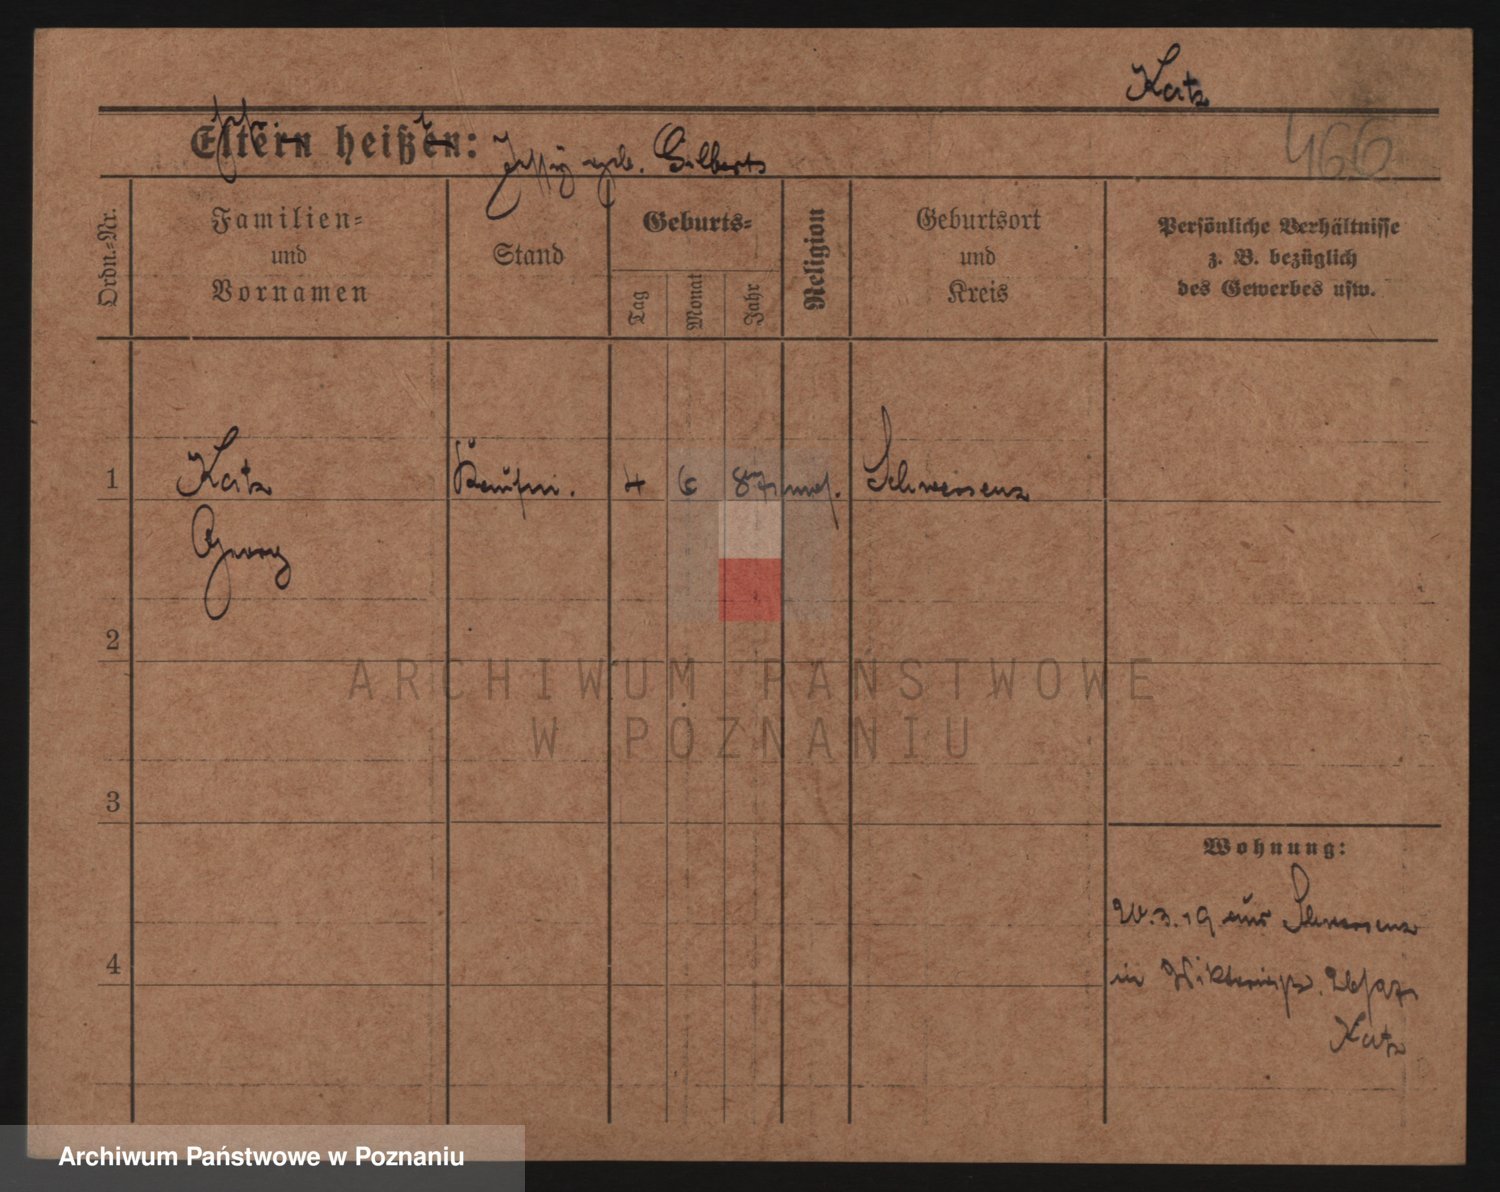 Katz
466
Eltern heißen: geb. Gilberts
Ordn.-Nr.
Familien-
und
Vornamen
Stand
Geburts-
Tag
Monat
Jahr
Religion
Geburtsort
und
Kreis
Persönliche Verhältnisse
z. B. bezüglich
des Gewerbes usw.
1 Katz Kaufm. 4 6 87 mos. Schwersenz
Georg
2
3
4
Wohnung:
20.3.19 aus Schwersenz
in 26/27
Katz
ARCHIWUM PAŃSTWOWE
W POZNANIU
Archiwum Państwowe w Poznaniu